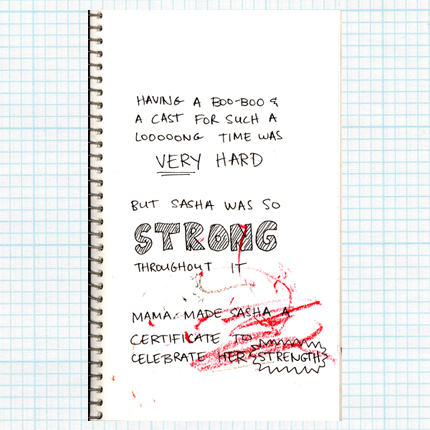 HAVING A BOO-BOO &
A CAST FOR SUCH A
LOOOOONG TIME WAS
VERY HARD
BUT SASHA WAS SO
STRONG
THROUGHOUT IT
MAMA MADE SASHA A
CERTIFICATE TO
CELEBRATE HER STRENGTH